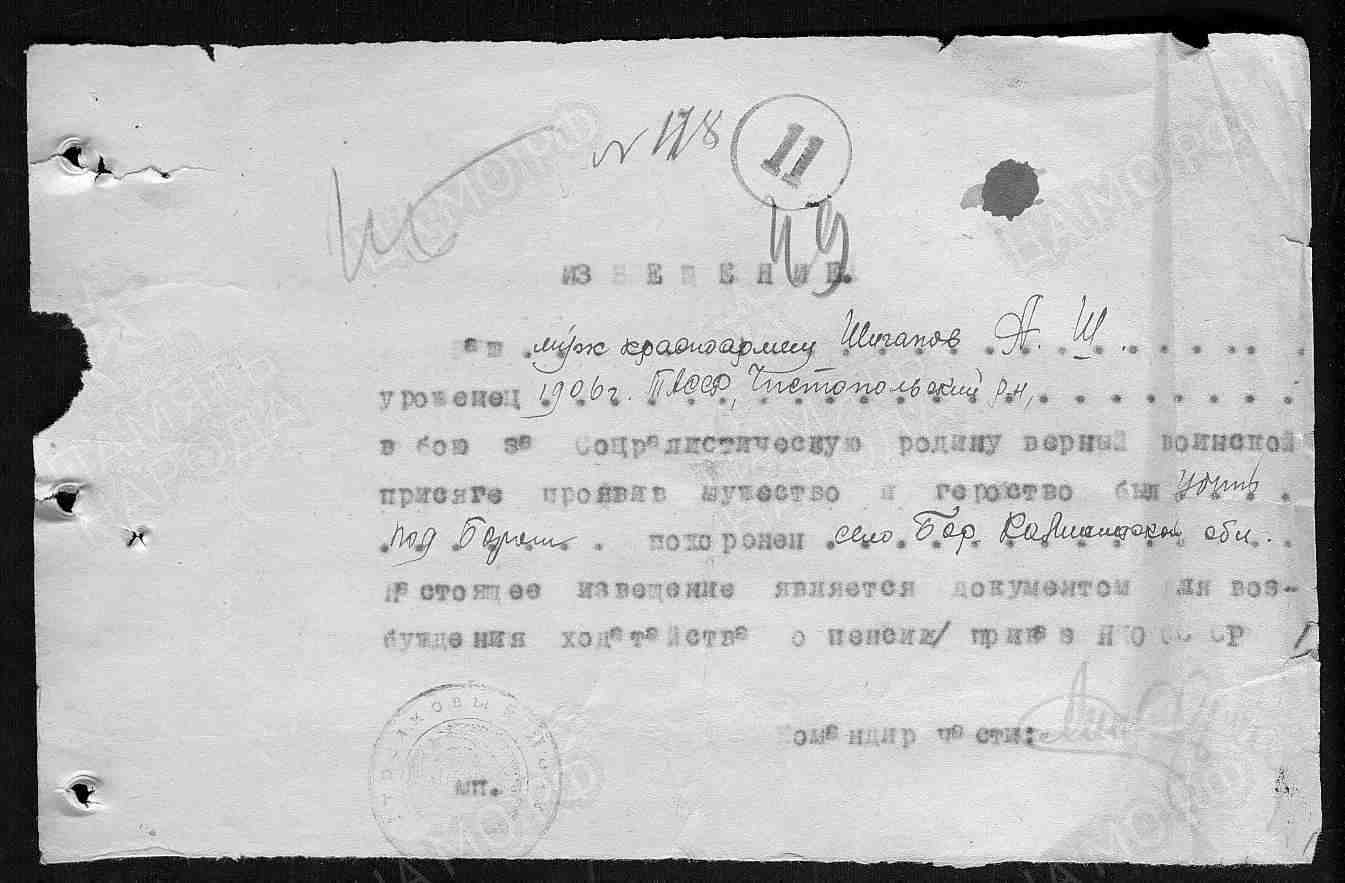 N 118
11
49
ИЗВЕЩЕНИЕ.
Ваш муж красноармеец Шигапов А. Ш.
уроженец 1906 г. ТАССР, Чистопольский р-н,
в бою за Социалистическую родину верный воинской
присяге проявив мужество и геройство был убит
под похоронен село Бор обл.
Настоящее извещение является документом для воз-
буждения ходатайства о пенсии/ приказ НКО СССР
Командир части:
МП.